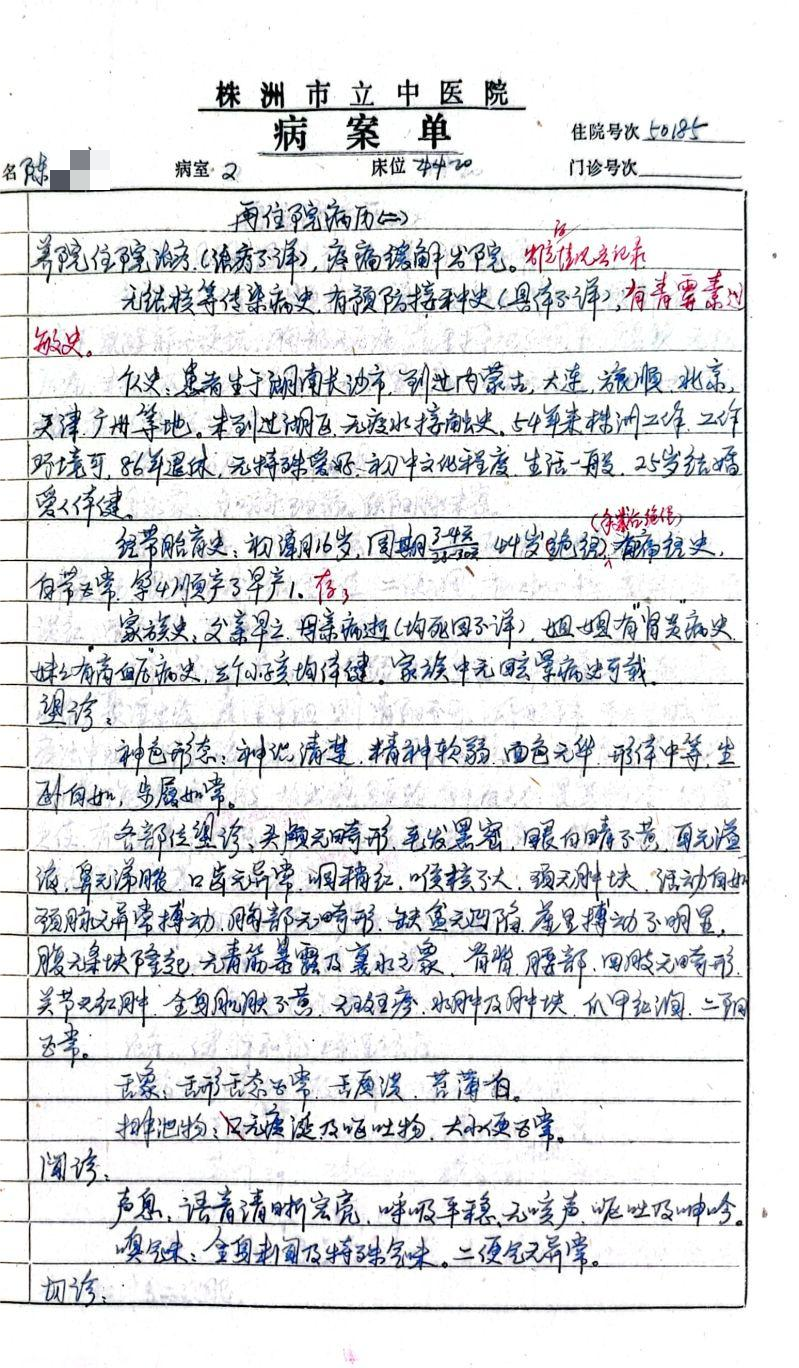 株洲市立中医院
病案单
住院号次 50185
名 陈 病室 2 床位 门诊号次
再住院病历(二)
院住院治疗(治疗不详),疼痛缓解出院。
无结核等传染病史,有预防接种史(具体不详),有青霉素过
敏史。
个人史:患者生于湖南长沙市,到过内蒙古,大连,旅顺,北京,
天津,广州等地。未到过湖区,无疫水接触史。54年来株洲工作,工作
环境可,86年退休,无特殊爱好,初中文化程度,生活一般,25岁结婚
爱人体健。
经带胎育史:初潮16岁,周期 44岁绝经,有痛经史,
白带正常,孕4顺产3早产1。存3
家族史:父亲早亡,母亲病逝(均死因不详),姐姐有"肾炎"病史
妹妹有"高血压"病史,三个小孩均体健,家族中无眩晕病史可载。
望诊:
神色形态:神识清楚,精神软弱,面色无华,形体中等,坐
卧自如,步履如常。
各部位望诊:头颅无畸形,毛发黑密,眼白睛不黄,耳无溢
液,鼻无涕脓,口齿无异常,咽稍红,喉核不大,颈无肿块,活动自如
颈脉无异常搏动,胸部无畸形,缺盆无凹陷,虚里搏动不明显,
腹无条块隆起,无青筋暴露及裹水之象,脊背,腰部,四肢无畸形
关节无红肿,全身肌肤不黄,无斑疹,水肿及肿块,爪甲红润,二阴
正常。
舌象:舌形舌态正常,舌质淡,苔薄白。
排泄物:无痰涎及呕吐物,大小便正常。
闻诊:
声息:语音清晰宏亮,呼吸平稳,无咳声,呕吐及呻吟。
嗅气味:全身未闻及特殊气味。二便气无异常。
切诊: